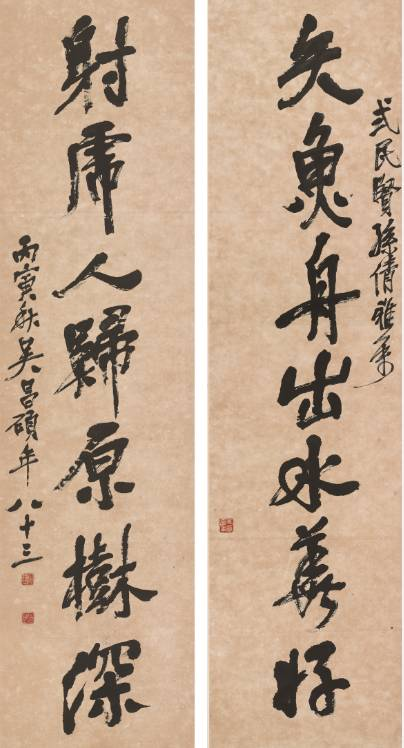 式民賢孫倩雅屬
矢魚舟出水華好
射虎人歸原樹深
丙寅秋吳昌碩年八十三